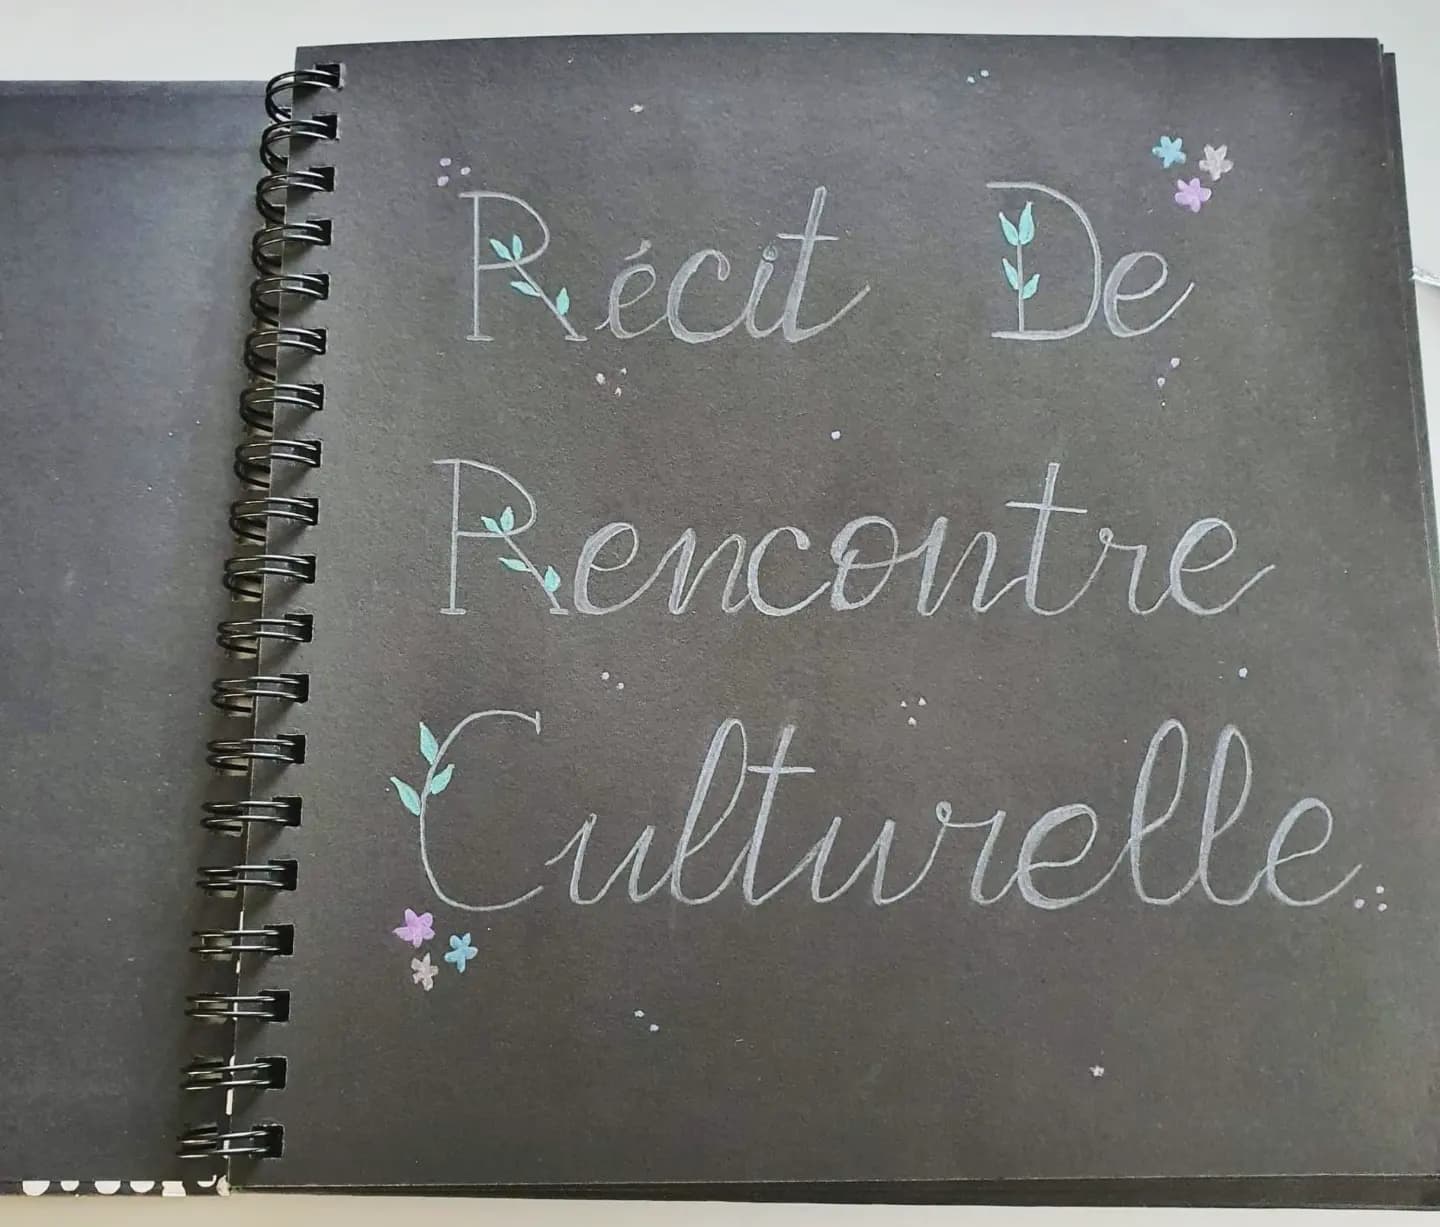 Récit De
Rencontre
Culturelle